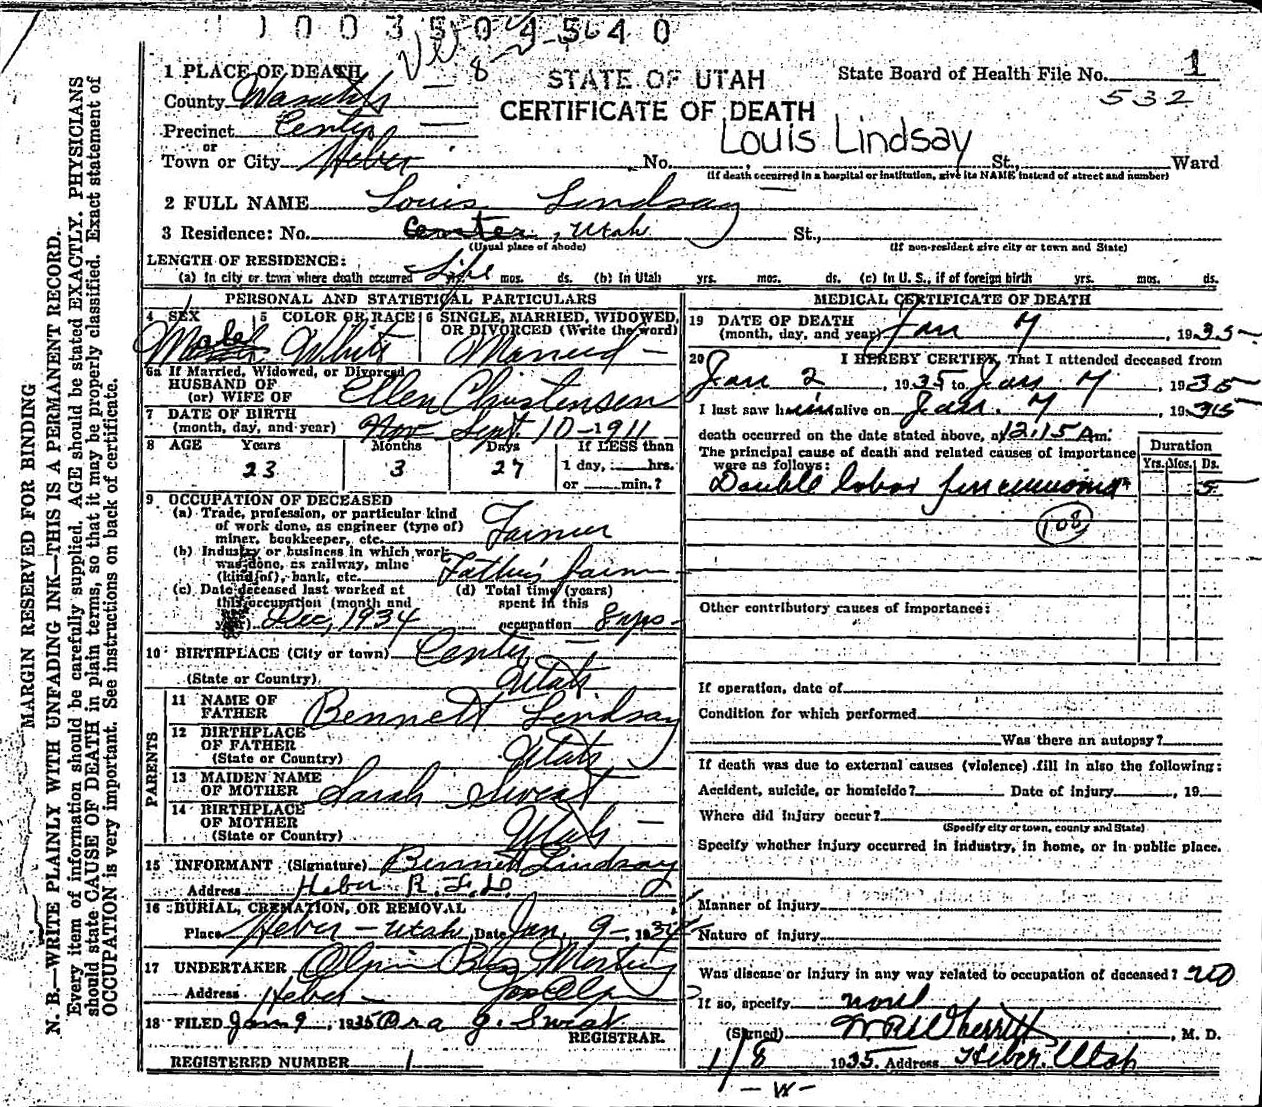 1003504540
1 PLACE OF DEATH
STATE OF UTAH
CERTIFICATE OF DEATH
State Board of Health File No. 1
532
County Wasatch
Precinct Center
or
Town or City Heber No. , St., Ward
Louis Lindsay
(If death occurred in a hospital or institution, give its NAME instead of street and number)
2 FULL NAME Louis Lindsay
3 Residence: No. Center, Utah St.,
(Usual place of abode) (If non-resident give city or town and State)
LENGTH OF RESIDENCE:
(a) In city or town where death occurred Life mos. ds. (b) In Utah yrs. mos. ds. (c) In U. S., if of foreign birth yrs. mos. ds.
PERSONAL AND STATISTICAL PARTICULARS
4 SEX 5 COLOR OR RACE 6 SINGLE, MARRIED, WIDOWED, OR DIVORCED (Write the word)
Male White Married
6a If Married, Widowed, or Divorced
HUSBAND OF
(or) WIFE OF Ellen Christensen
7 DATE OF BIRTH
(month, day, and year) Nov Sept 10-1911
8 AGE Years Months Days If LESS than
23 3 27 1 day, hrs.
or min.?
9 OCCUPATION OF DECEASED
(a) Trade, profession, or particular kind
of work done, as engineer (type of)
miner, bookkeeper, etc. Farmer
(b) Industry or business in which work
was done, as railway, mine
(kind of), bank, etc. Father's farm
(c) Date deceased last worked at
this occupation (month and
year) Dec, 1934
(d) Total time (years)
spent in this
occupation 8 yrs
10 BIRTHPLACE (City or town) Center
(State or Country) Utah
PARENTS
11 NAME OF
FATHER Bennett Lindsay
12 BIRTHPLACE
OF FATHER
(State or Country) Utah
13 MAIDEN NAME
OF MOTHER Sarah Sweat
14 BIRTHPLACE
OF MOTHER
(State or Country) Utah
15 INFORMANT (Signature) Bennett Lindsay
Address Heber R. F. D.
16 BURIAL, CREMATION, OR REMOVAL
Place Heber - Utah Date Jan. 9, 1935
17 UNDERTAKER Olpin Bros Mortuary
Address Heber
18 FILED Jan 9, 1935 Ora J. Sweat
REGISTRAR.
REGISTERED NUMBER 1
MEDICAL CERTIFICATE OF DEATH
19 DATE OF DEATH
(month, day, and year) Jan 7 1935
20 I HEREBY CERTIFY, That I attended deceased from
Jan 2, 1935 to Jan 7, 1935
I last saw him alive on Jan. 7, 1935
death occurred on the date stated above, at 12:15 Am.
The principal cause of death and related causes of importance
were as follows:
Duration
Yrs. Mos. Ds.
Double lobar pneumonia 5
108
Other contributory causes of importance:
If operation, date of
Condition for which performed
Was there an autopsy?
If death was due to external causes (violence) fill in also the following:
Accident, suicide, or homicide? Date of injury , 19
Where did injury occur?
(Specify city or town, county and State)
Specify whether injury occurred in industry, in home, or in public place.
Manner of injury
Nature of injury
Was disease or injury in any way related to occupation of deceased? no
If so, specify none
(Signed) , M. D.
1/8 1935 Address Heber, Utah
- W -
MARGIN RESERVED FOR BINDING
N. B.—WRITE PLAINLY WITH UNFADING INK—THIS IS A PERMANENT RECORD.
Every item of information should be carefully supplied. AGE should be stated EXACTLY. PHYSICIANS
should state CAUSE OF DEATH in plain terms, so that it may be properly classified. Exact statement of
OCCUPATION is very important. See instructions on back of certificate.